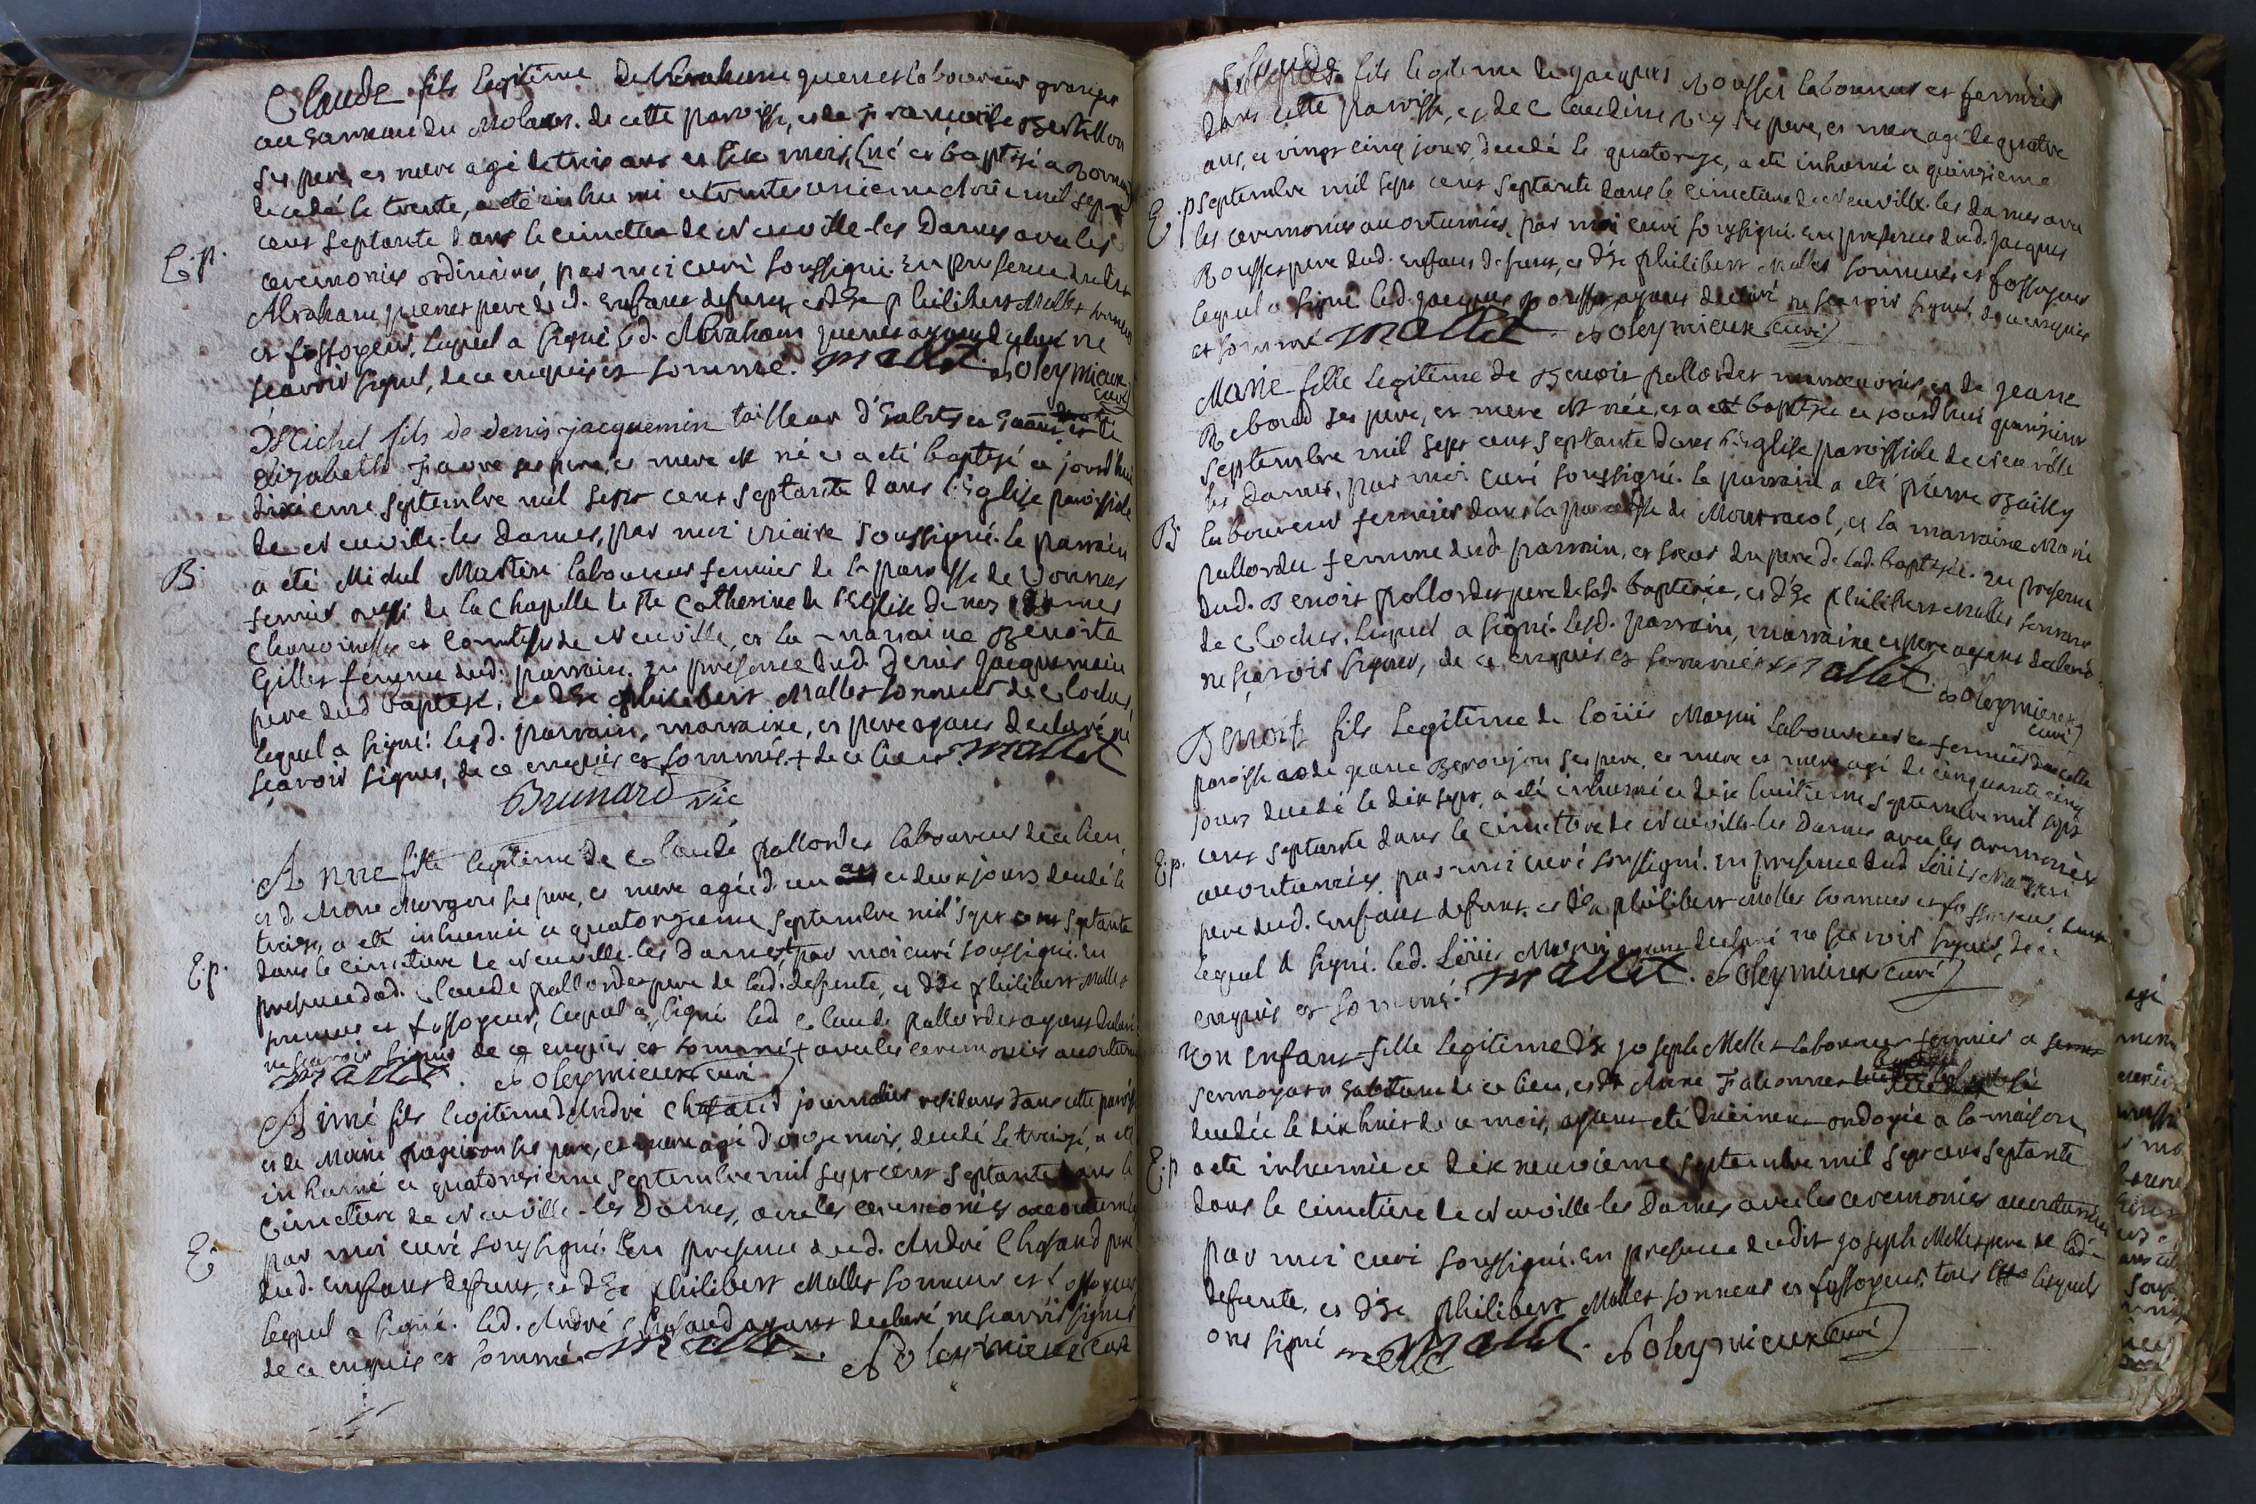 Claude fils legitime de Abraham guerret laboureur granger
au hameau du Molard de cette paroisse, et de francoise Bertillon
ses pere, et mere agé de trois ans et six mois, (né et baptisé a
decedé le trente, a été inhumé ce trente unieme Août mil sept
cens septante dans le cimetiere de Neuville-les Dames avec les
E.p.
ceremonies ordinaires, par moi curé soussigné. En presence dudit
Abraham guerret pere dud. enfant defunt et d'hte philibert Mallet sonneur
et fossoyeur, lequel a signé led. Abraham guerret ayant declaré ne
scavoir signer, de ce enquis et sommé. Mallet Soleymieux
curé
Michel fils de denis jacquemin tailleur d'habits et
Elizabeth Favre ses pere, et mere est né et a été baptisé ce jourd'hui
dixieme septembre mil sept cens septante dans l'Eglise paroissiale
de Neuville-les Dames, par moi vicaire soussigné. Le parrain
B.
a été Michel Martin laboureur fermier de la paroisse de Vonnas
fermier aussi de la Chapelle de Ste Catherine de l'Eglise de nos Dames
Chanoinesses et Comtesses de Neuville, et la marraine Benoite
Gillet femme dud. parrain. En presence dud. Denis Jacquemin
pere dud baptisé, et d'hte philibert Mallet sonneur de cloches,
lequel a signé. Lesd. parrain, marraine, et pere ayant declaré ne
sçavoir signer, de ce enquis et sommés. + de ce lieu Mallet
Brunard vic
Anne fille legitime de Claude pallordet laboureur de ce lieu,
et de Marie Morgon ses pere, et mere agée d'un an et deux jours decedé le
treize, a été inhumée ce quatorzieme septembre mil sept cens septante
dans le cimetiere de Neuville-les Dames + par moi curé soussigné. En
E.p.
presence dud. Claude pallordet pere de lad. defunte, et d'hte philibert Mallet
sonneur et fossoyeur, lequel a signé led Claude pallordet ayant declaré
ne scavoir signer de ce enquis et sommé + avec les ceremonies accoutumées
Mallet. Soleymieux curé
Aimé fils legitime d'André Chasaud journalier residant dans cette paroisse
et de Marie ses pere, et mere agé d'onze mois, decedé le treize, a été
inhumé ce quatorzieme septembre mil sept cens septante dans le
cimetiere de Neuville-les Dames, avec les ceremonies accoutumées
E.
par moi curé soussigné. En presence dud. André Chasaud pere
dud. enfant defunt, et d'hte philibert Mallet sonneur et fossoyeur,
lequel a signé. led. André Chasaud ayant declaré ne scavoir signer
de ce enquis et sommé. Mallet. Soleymieux curé
Claude fils legitime de jacques Rousset laboureur et fermier
dans cette paroisse, et de Claudine ses pere, et mere agé de quatre
ans, et vingt cinq jours, decedé le quatorze, a été inhumé ce quinzieme
E.p
septembre mil sept cens septante dans le cimetiere de Neuville-les Dames avec
les ceremonies accoutumées, par moi curé soussigné. En presence dud. jacques
Rousset pere dud. enfant defunt, et d'hte philibert Mallet sonneur et fossoyeur
lequel a signé led. jacques Rousset ayant declaré ne scavoir signer, de ce enquis
et sommé Mallet Soleymieux curé
Marie fille legitime de Benoit pallordet manoeuvrier, et de jeanne
Reboud ses pere, et mere est née, et a été baptisée ce jourd'hui quinzieme
septembre mil sept cens septante dans l'Eglise paroissiale de Neuville
les Dames, par moi curé soussigné. Le parrain a été pierre Bailly
B
laboureur fermier dans la paroisse de Montracol, et la marraine Marie
pallordet femme dud. parrain, et soeur du pere de lad. baptisée. En presence
dud. Benoit pallordet pere de lad. baptisée, et d'hte philibert Mallet sonneur
de Cloches, lequel a signé. Lesd. parrain, marraine et pere ayant declaré
ne sçavoir signer, de ce enquis et sommés Mallet Soleymieux
curé
Benoit fils legitime de loüis Magnin laboureur et fermier dans cette
paroisse et de jeanne Beroujon ses pere, et mere et mere agé de cinquante cinq
jours decedé le dix sept, a été inhumé ce dix huitieme septembre mil sept
cens septante dans le cimetiere de Neuville-les Dames avec les ceremonies
E.p.
accoutumées, par moi curé soussigné. En presence dud Loüis Magnin
pere dud. enfant defunt, et d'hte philibert Mallet sonneur et fossoyeur,
lequel a signé. Led. Loüis Magnin ayant declaré ne scavoir signer, de ce
enquis et sommé. Mallet. Soleymieux curé
Un Enfant fille legitime d'hte joseph Mellet laboureur fermier a
habitant de ce lieu, et de Marie
decedée le dix huit de ce mois, ayant été ondoyée a la maison,
E.p
a été inhumée ce dix neuvieme septembre mil sept cens septante
dans le cimetiere de Neuville-les Dames avec les ceremonies accoutumées
par moi curé soussigné. En presence dudit joseph Mellet pere de lad.
defunte, et d'hte philibert Mallet sonneur et fossoyeur, tous lesquels
ont signé mellet Mallet. Soleymieux curé